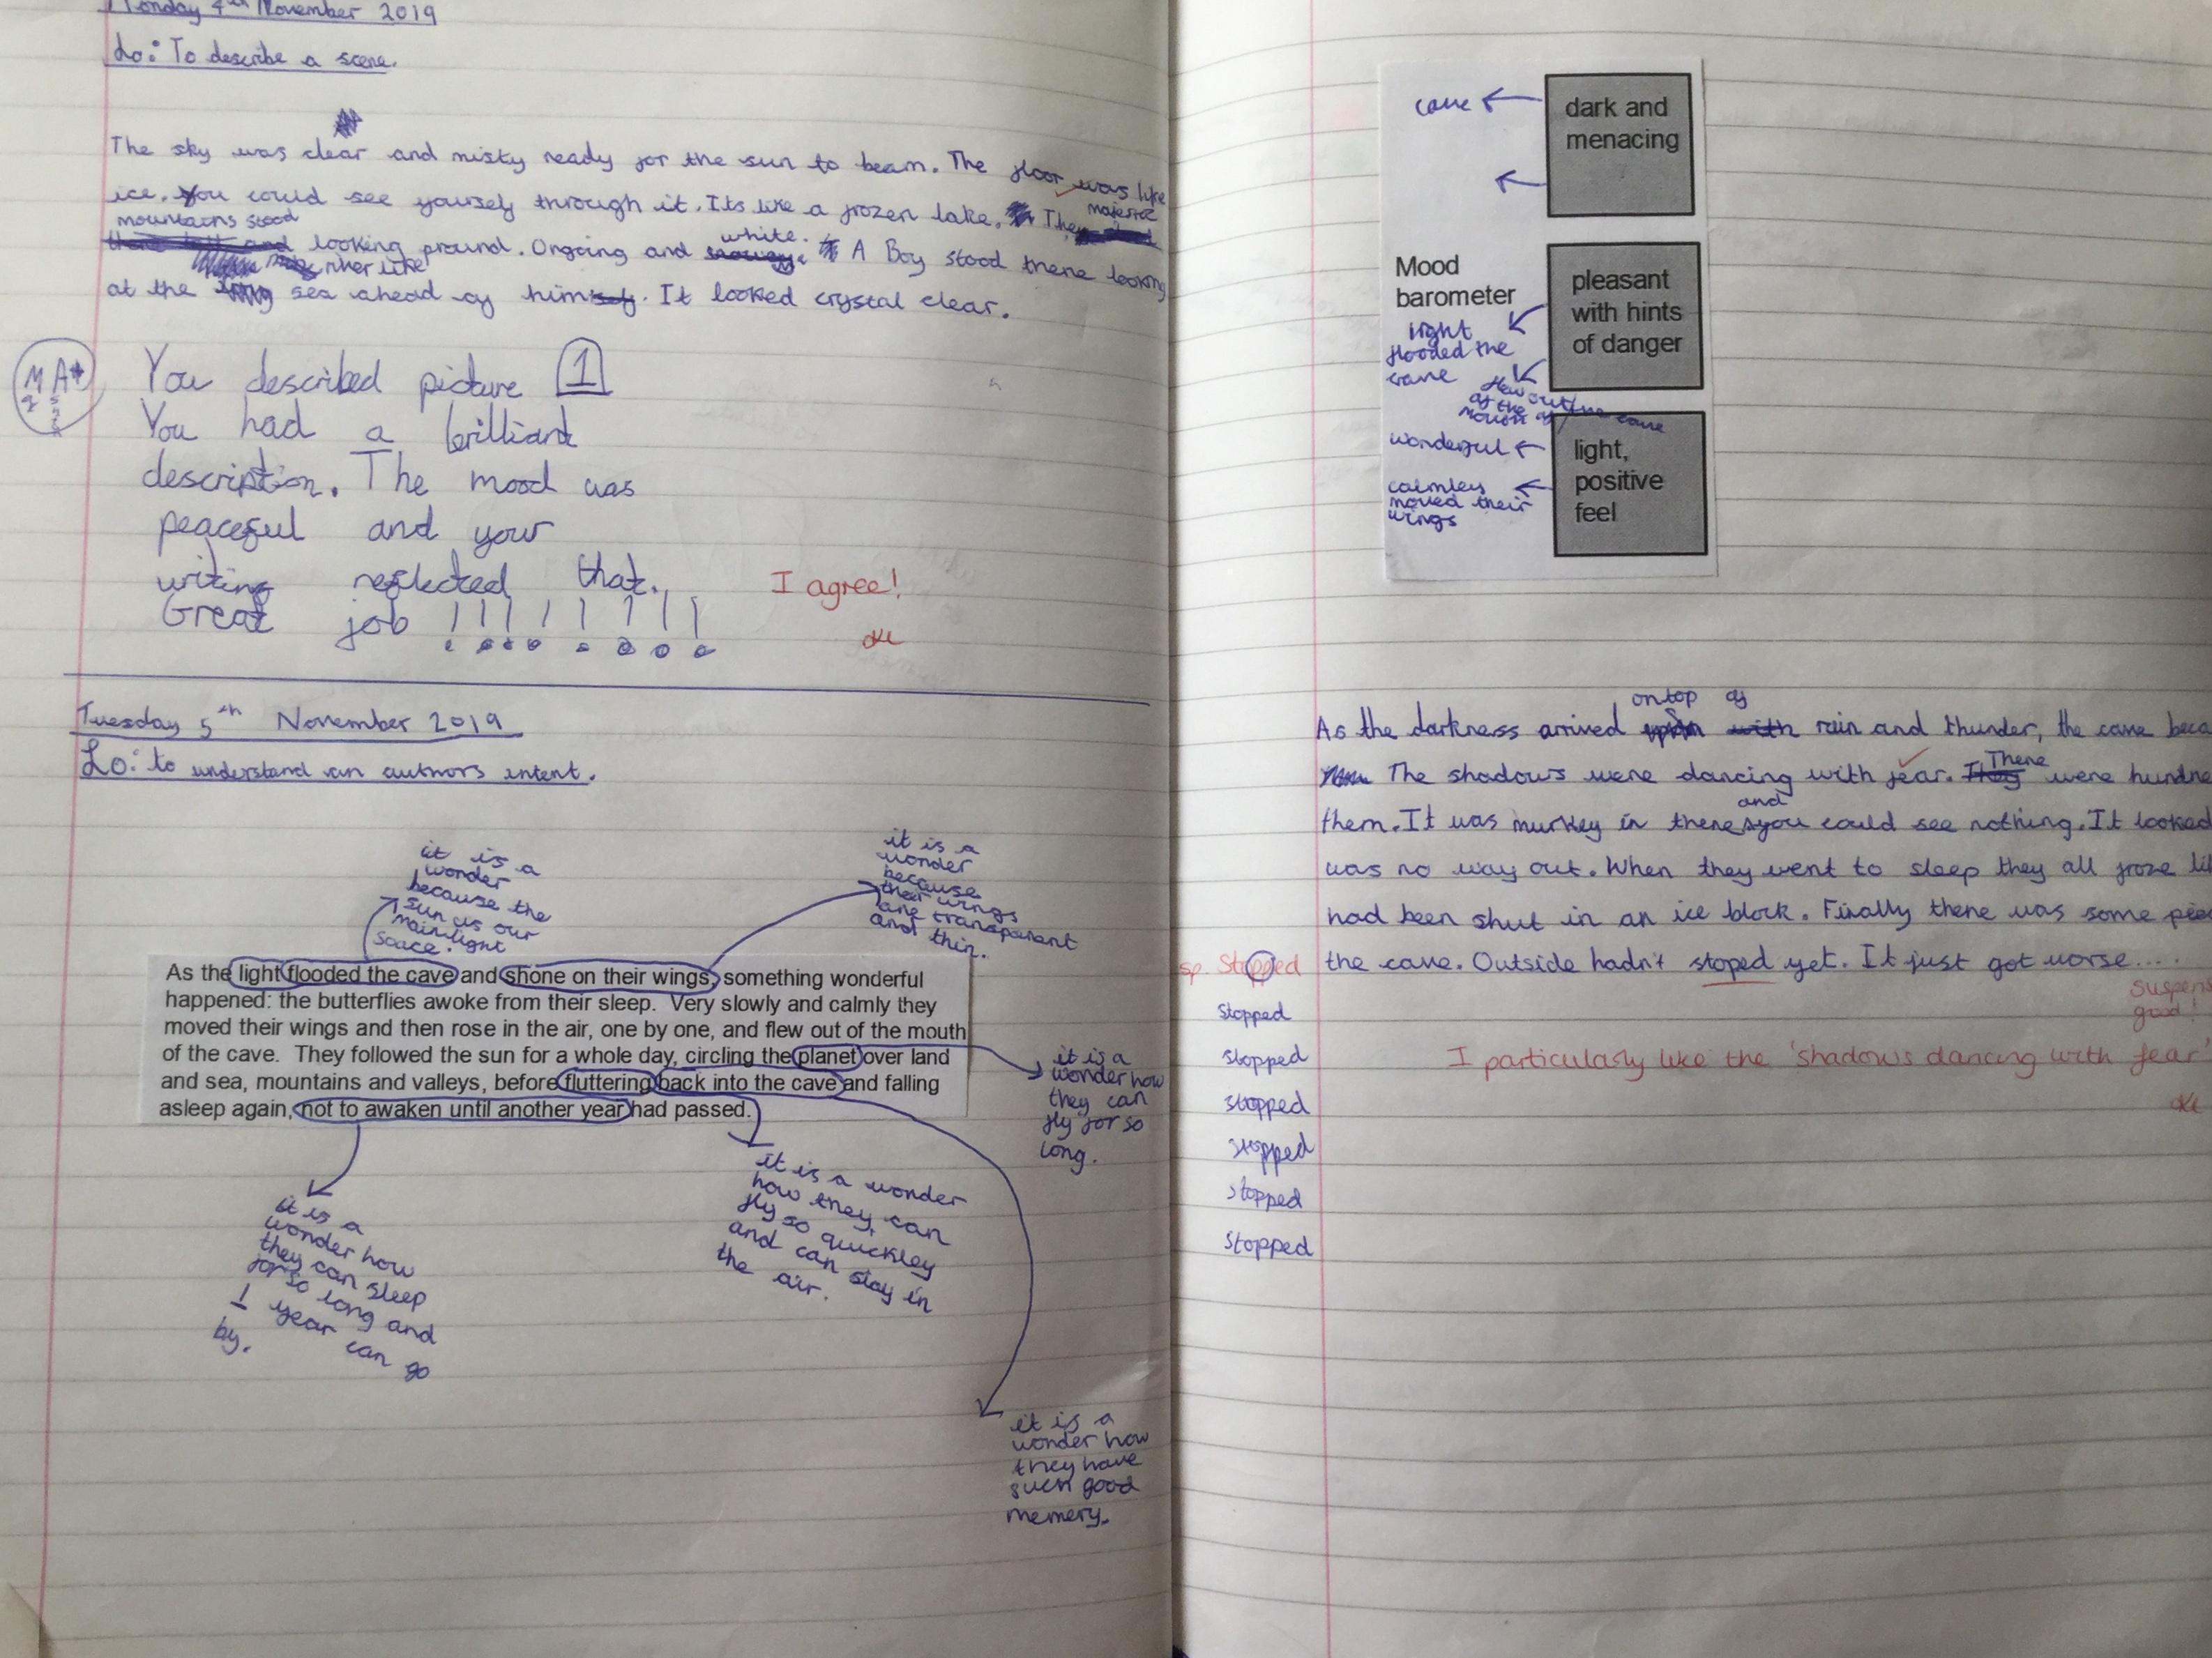 Monday 4th November 2019
Lo: To describe a scene.
The sky was clear and misty ready for the sun to beam. The floor was like
ice. You could see yourself through it. Its like a frozen lake. The majestic
mountains stood
looking around. Ongoing and white. A Boy stood there looking
river like
at the sea ahead of him. It looked crystal clear.
You described picture 1
You had a brilliant
description. The mood was
peaceful and your
writing reflected that.
Great job !!!!!!!!
I agree!
Tuesday 5th November 2019
Lo: to understand an authors intent.
it is a
wonder
because the
sun is our
main light
soace.
it is a
wonder
because
their wings
are transparent
and thin.
As the light flooded the cave and shone on their wings, something wonderful
happened: the butterflies awoke from their sleep. Very slowly and calmly they
moved their wings and then rose in the air, one by one, and flew out of the mouth
of the cave. They followed the sun for a whole day, circling the planet over land
and sea, mountains and valleys, before fluttering back into the cave and falling
asleep again, not to awaken until another year had passed.
it is a
wonder how
they can
fly for so
long.
it is a wonder
how they can
fly so quickley
and can stay in
the air.
it is a
wonder how
they can sleep
for so long and
1 year can go
by.
it is a
wonder how
they have
such good
memery.
cave
dark and
menacing
Mood
barometer
pleasant
with hints
of danger
light
flooded the
cave
flew out
of the
mouth of the cave
wonderful
light,
positive
feel
calmley
moved their
wings
on top of
As the darkness arrived rain and thunder, the cave beca
The shadows were dancing with fear. There were hundre
them. It was murkey in there and you could see nothing. It looked
was no way out. When they went to sleep they all froze li
had been shut in an ice block. Finally there was some
sp. Stopped
the cave. Outside hadn't stoped yet. It just got worse....
suspens
good!
stopped
stopped
I particularly like the 'shadows dancing with fear'
stopped
stopped
stopped
stopped